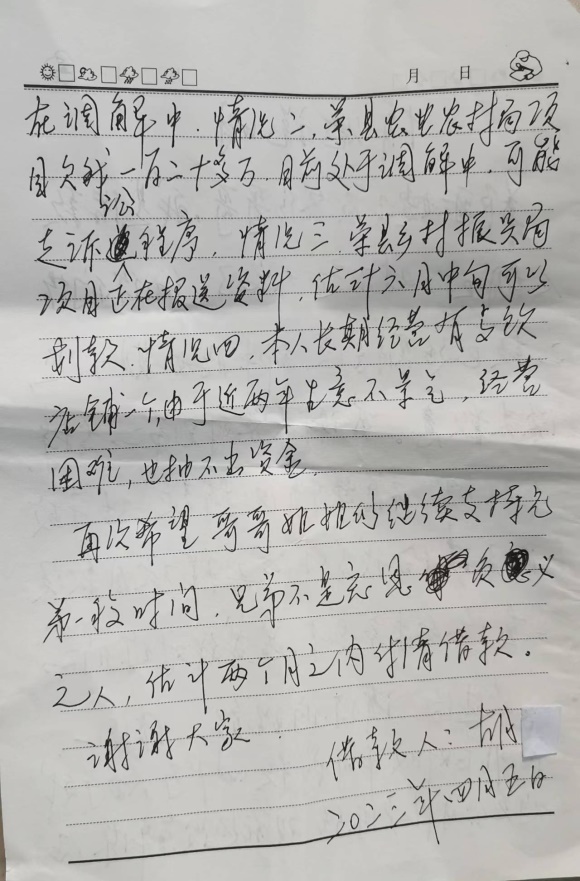 月 日
在调解中.情况二,荣县农业农村局项
目欠我一百二十多万.目前处于调解中,可能
走诉讼程序,情况三.荣县乡村振兴局
项目正在报送资料,估计六月中旬可以
划款.情况四,本人长期经营有餐饮
店铺一个,由于近两年生意不景气,经营
困难,也抽不出资金.
再次希望哥哥姐姐们继续支持兄
弟一段时间,兄弟不是忘恩负义
之人,估计两个月之内付清借款。
谢谢大家.
借款人:胡
二〇二三年四月五日